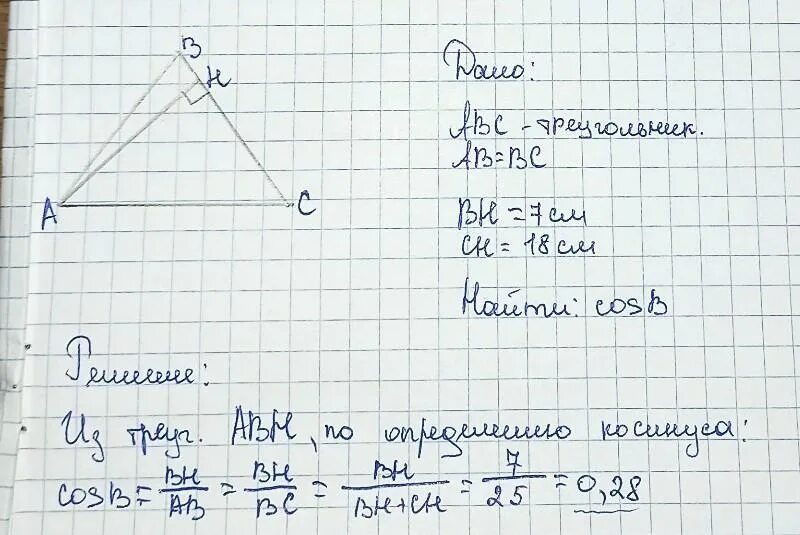 B
H
A
C
Дано:
ABC - треугольник.
AB = BC
BH = 7 см
CH = 18 см
Найти: cosB
Решение:
Из треуг. ABH, по определению косинуса:
cosB = BH/AB = BH/BC = BH/(BH+CH) = 7/25 = 0,28